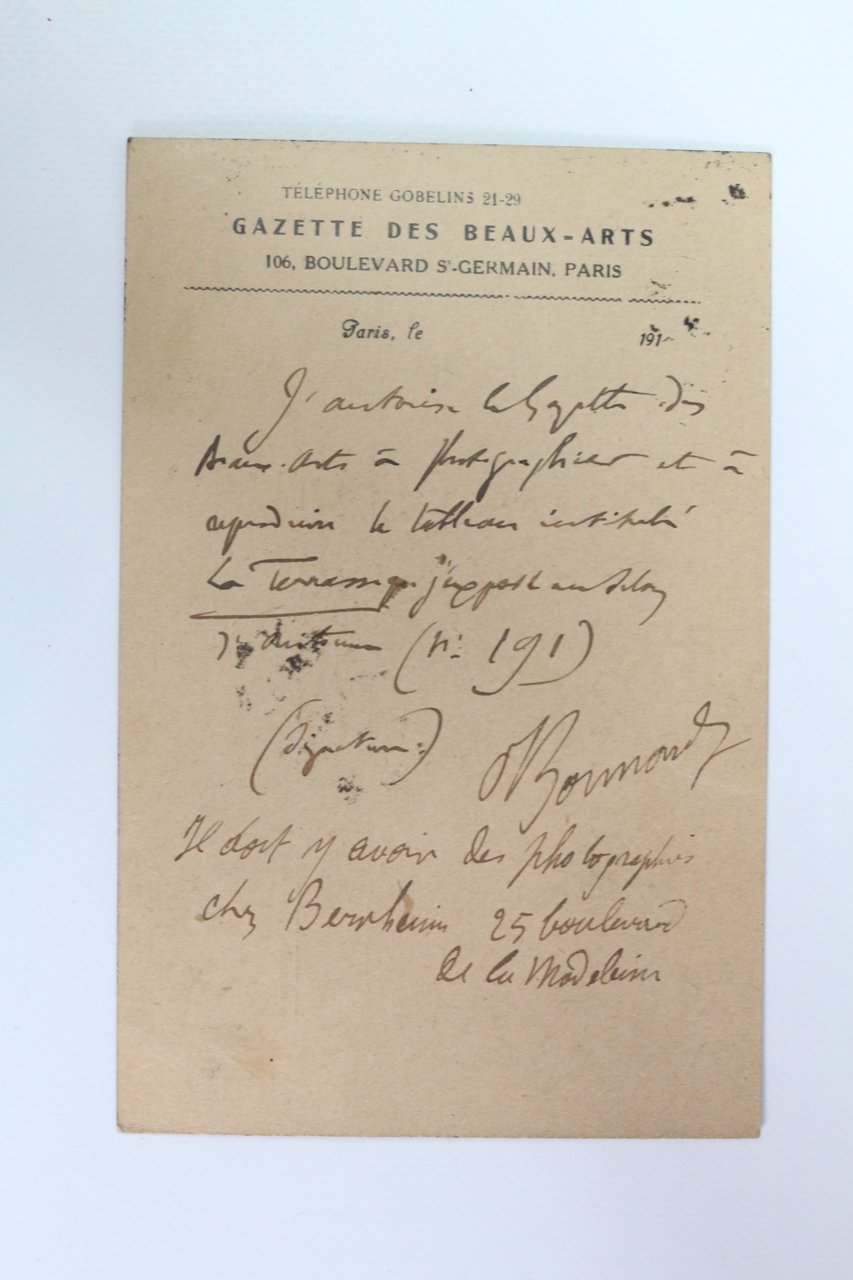 TÉLÉPHONE GOBELINS 21-29
GAZETTE DES BEAUX-ARTS
106, BOULEVARD St-GERMAIN, PARIS
Paris, le 191
J'autorise la Gazette des
Beaux-Arts à photographier et à
reproduire le tableau intitulé
La Terrasse que j'expose au Salon
d'Automne (n° 191)
(Signature:) Bonnard
Il doit y avoir des photographies
chez Bernheim 25 boulevard
de la Madeleine